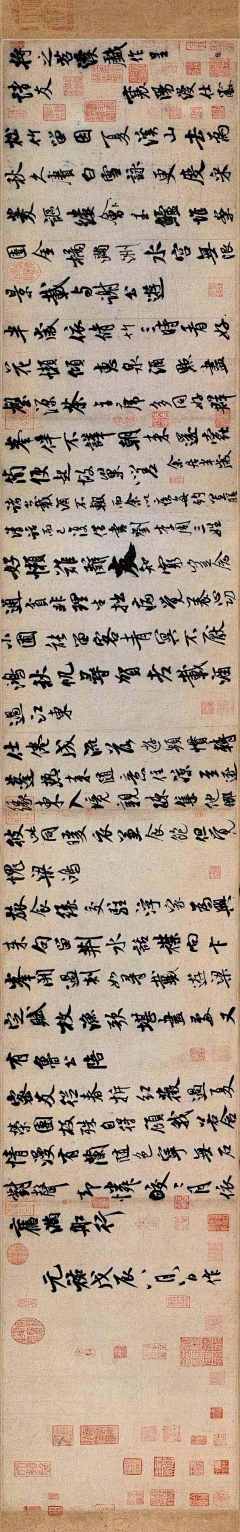 將之苕溪戲作呈
諸友 襄陽漫仕黻
松竹留因夏溪山去為
秋久賡白雪詠更度采
菱謳縷會玉鱸堆案
團金橘滿洲水宮無限
景載與謝公遊
半歲依修竹三時看好
花懶傾惠泉酒點盡
壑源茶主席多同好群
峰伴不譁朝來還蠹
簡便起故巢嗟 余居半歲
諸公載酒不輟而余以疾每約置膳
清話而已復借書劉李周三姓
好懶難辭友知窮豈念
通貧非理生拙病覺養心功
小圃能留客青冥不厭
鴻秋帆尋賀老載酒
過江東
仕倦成流落遊頻慣轉
蓬熱來隨意住涼至逐
緣東入境親疎集他鄉
彼此同暖衣兼食飽但覺
愧梁鴻
旅食緣交駐浮家為興
來句留荊水話襟向卞
峰開過剡如尋戴遊梁
定賦枚漁歌堪畫處又
有魯公陪
密友從春拆紅薇過夏
榮團枝殊自得顧我若含
情漫有蘭隨色寧無石
對聲卻憐皎〻月依
舊滿船行
元祐戊辰八月八日作